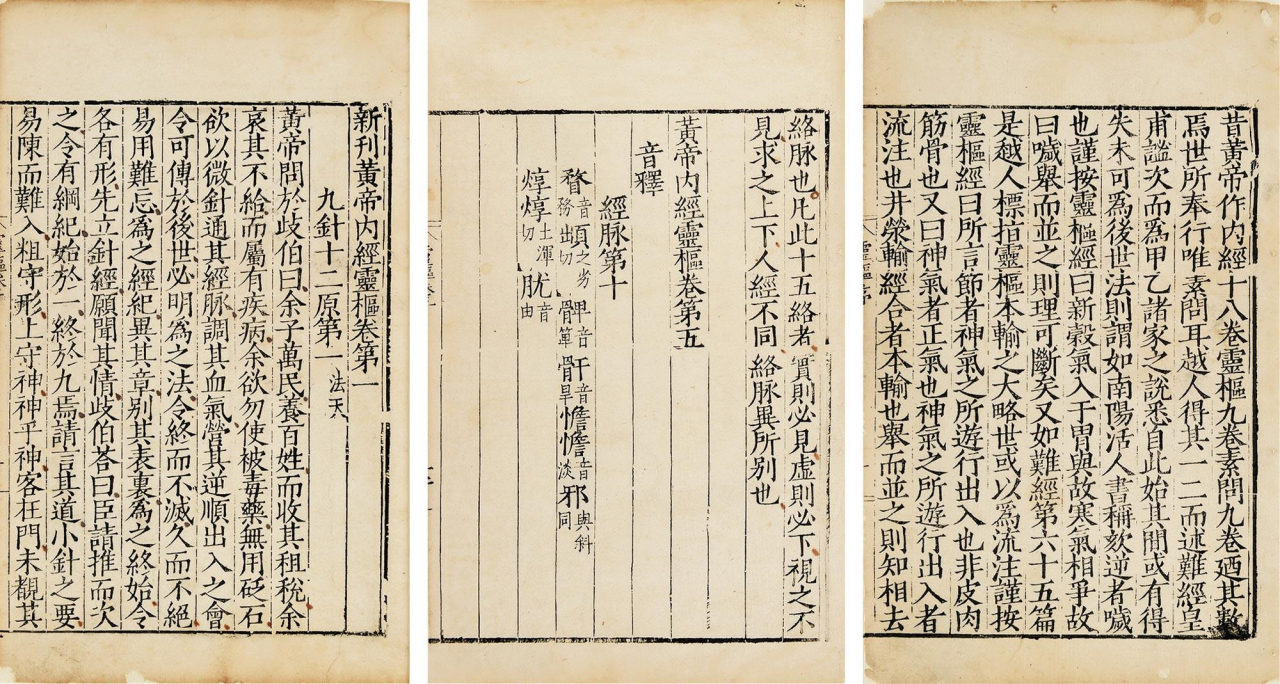 昔黃帝作內經十八卷靈樞九卷素問九卷廼其數
焉世所奉行唯素問耳越人得其一二而述難經皇
甫謐次而為甲乙諸家之說悉自此始其間或有得
失未可為後世法則謂如南陽活人書稱欬逆者噦
也謹按靈樞經曰新穀氣入于胃與故寒氣相爭故
曰噦舉而並之則理可斷矣又如難經第六十五篇
是越人標指靈樞本輸之大略世或以為流注謹按
靈樞經曰所言節者神氣之所遊行出入也非皮肉
筋骨也又曰神氣者正氣也神氣之所遊行出入者
流注也井滎輸經合者本輸也舉而並之則知相去
絡脉也凡此十五絡者實則必見虛則必下視之不
見求之上下人經不同絡脉異所別也
黃帝內經靈樞卷第五
音釋
經脉第十
瞀音務䪼之劣出切髀音箄骭音旱憺憺音淡邪與斜同
焞焞土渾切肬音由
新刊黃帝內經靈樞卷第一
九針十二原第一 法天
黃帝問於歧伯曰余子萬民養百姓而收其租稅余
哀其不給而屬有疾病余欲勿使被毒藥無用砭石
欲以微針通其經脉調其血氣營其逆順出入之會
令可傳於後世必明為之法令終而不滅久而不絕
易用難忘為之經紀異其章別其表裏為之終始令
各有形先立針經願聞其情歧伯荅曰臣請推而次
之令有綱紀始於一終於九焉請言其道小針之要
易陳而難入粗守形上守神神乎神客在門未覩其